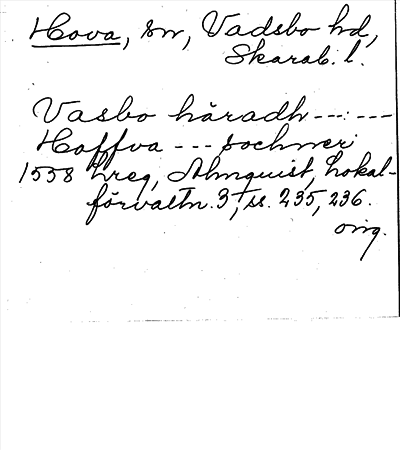 Hova, sn, Vadsbo hd,
Skarab. l.
Vasbo häradh --- ---
Hoffva --- sochner
1558 hreg, Almquist, Lokal-
förvaltn. 3, ss. 235, 236.
orig.